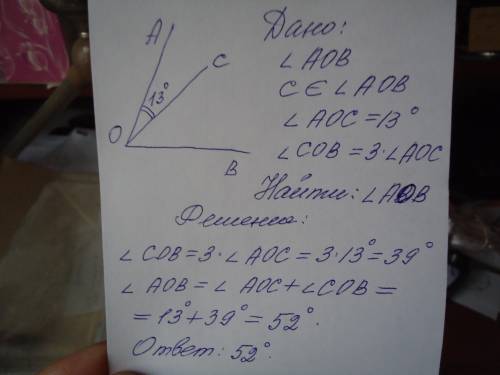 A
C
13°
O
B
Дано:
∠AOB
C ∈ ∠AOB
∠AOC = 13°
∠COB = 3·∠AOC
Найти: ∠AOB
Решение:
∠COB = 3·∠AOC = 3·13° = 39°
∠AOB = ∠AOC + ∠COB =
= 13° + 39° = 52°.
Ответ: 52°.